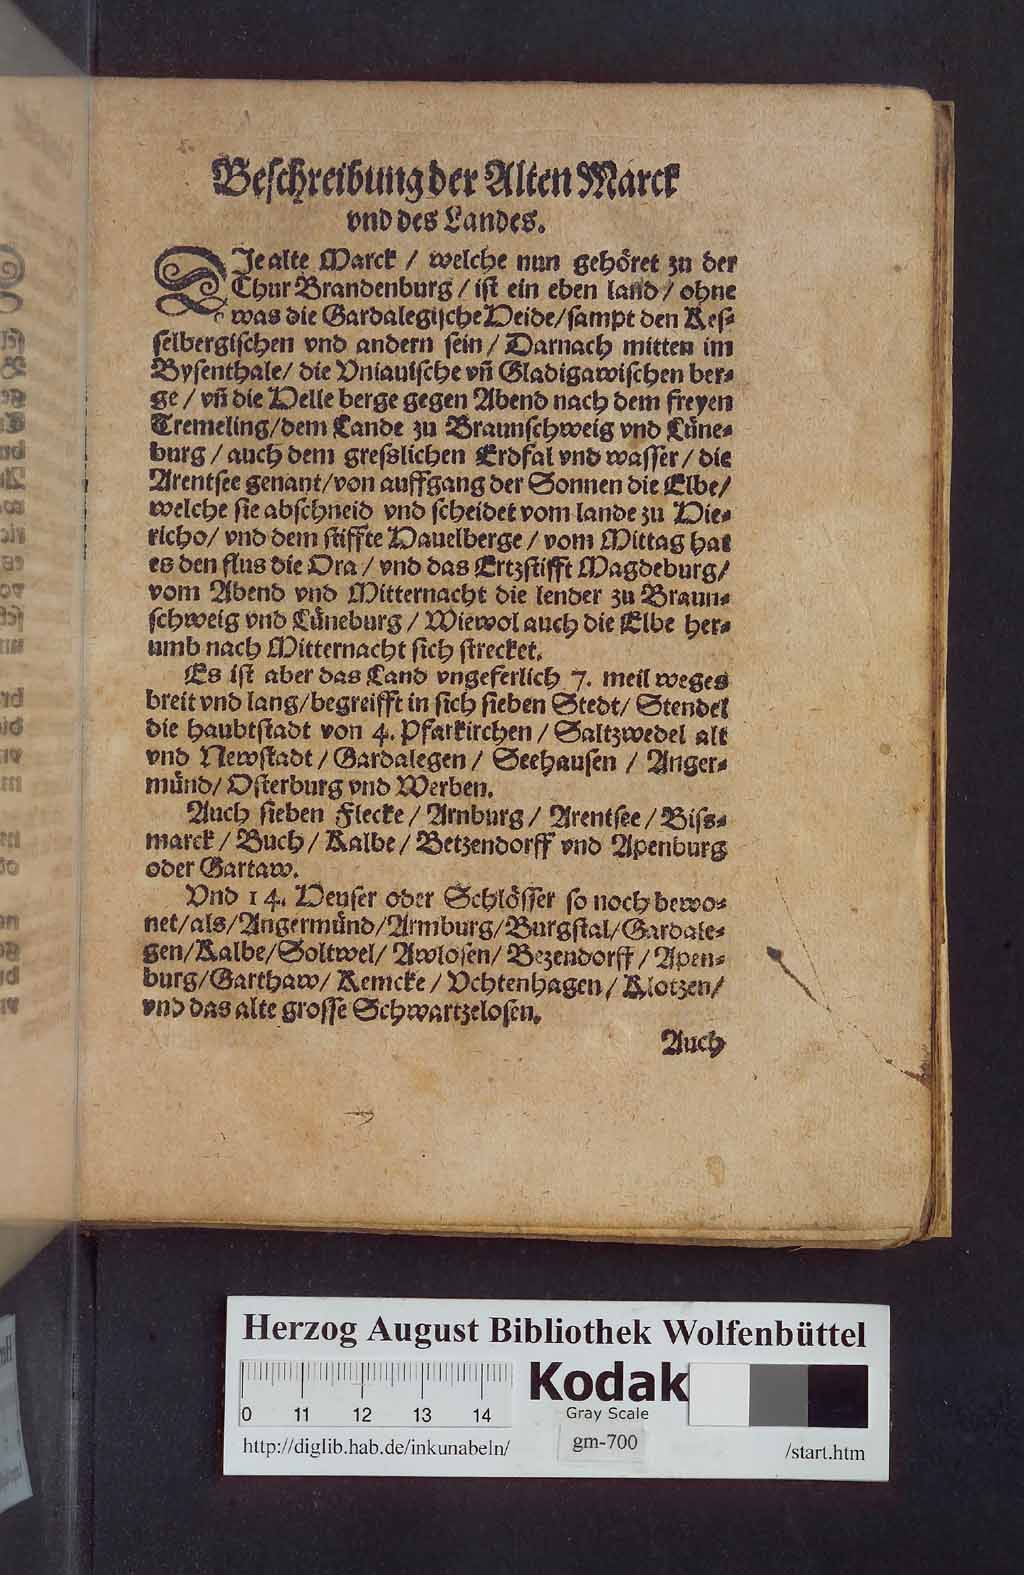 Beschreibung der Alten Marck
vnd des Landes.
DJe alte Marck / welche nun gehöret zu der
Chur Brandenburg / ist ein eben land / ohne
was die Gardalegische Heide / sampt den Kes-
selbergischen vnd andern sein / Darnach mitten im
Bysenthale / die Vniauische vñ Gladigawischen ber-
ge / vñ die Helle berge gegen Abend nach dem freyen
Tremeling / dem Lande zu Braunschweig vnd Lüne-
burg / auch dem gresslichen Erdfal vnd wasser / die
Arentsee genant / von auffgang der Sonnen die Elbe /
welche sie abschneid vnd scheidet vom lande zu Hie-
richo / vnd dem stiffte Hauelberge / vom Mittag hat
es den flus die Ora / vnd das Ertzstifft Magdeburg /
vom Abend vnd Mitternacht die lender zu Braun-
schweig vnd Lüneburg / Wiewol auch die Elbe her-
umb nach Mitternacht sich strecket.
Es ist aber das Land vngeferlich 7. meil weges
breit vnd lang / begreifft in sich sieben Stedt / Stendel
die haubtstadt von 4. Pfarkirchen / Saltzwedel alt
vnd Newstadt / Gardalegen / Seehausen / Anger-
münd / Osterburg vnd Werben.
Auch sieben Flecke / Arnburg / Arentsee / Biss-
marck / Buch / Kalbe / Betzendorff vnd Apenburg
oder Gartaw.
Vnd 14. Heuser oder Schlösser so noch bewo-
net / als / Angermünd / Armburg / Burgstal / Gardale-
gen / Kalbe / Soltwel / Awlosen / Bezendorff / Apen-
burg / Garthaw / Kemcke / Vchtenhagen / Klotzen /
vnd das alte grosse Schwartzelosen.
Auch
Herzog August Bibliothek Wolfenbüttel
Kodak
Gray Scale
0 11 12 13 14
http://diglib.hab.de/inkunabeln/ gm-700 /start.htm